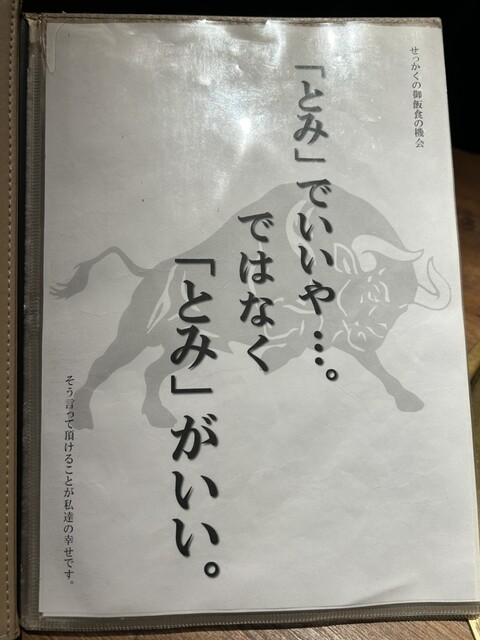 せっかくの御飯食の機会
「とみ」でいいや…。
ではなく
「とみ」がいい。
そう言って頂けることが私達の幸せです。